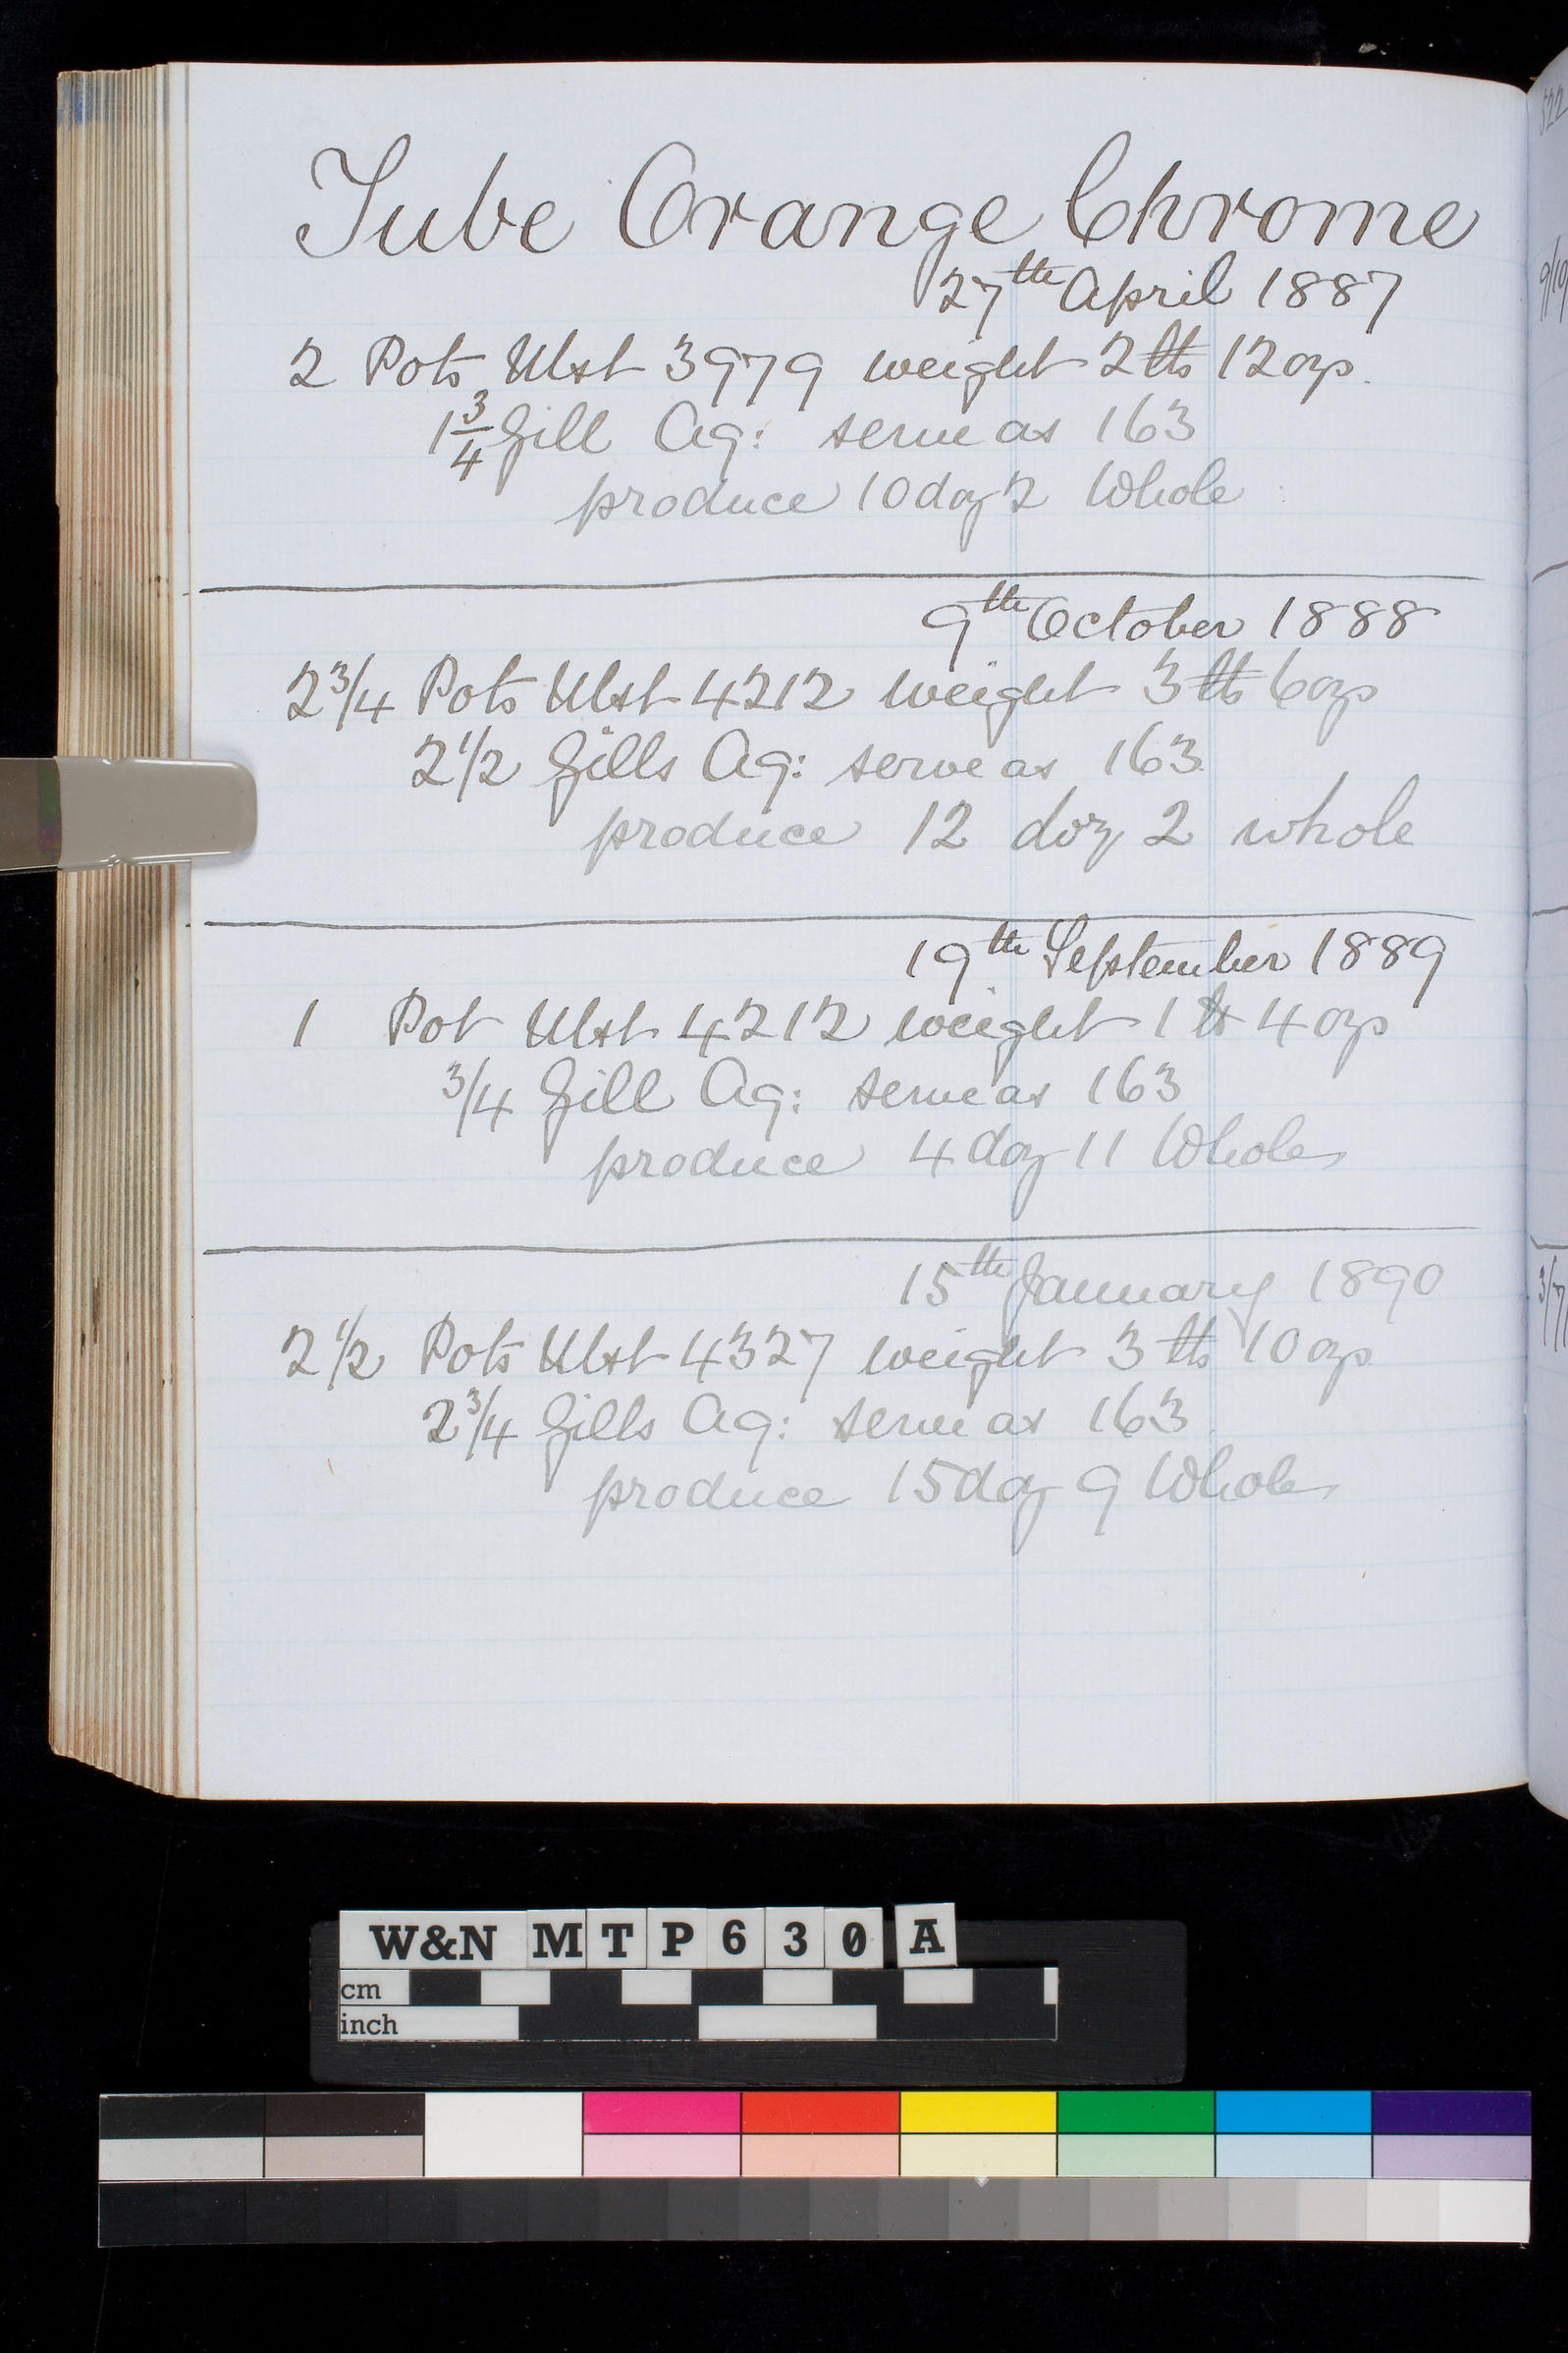 Tube Orange Chrome
27th April 1887
2 Pots Ulst 3979 weight 2 lbs 12 ozs.
1 3/4 Gill Aq: serve as 163
produce 10 doz 2 Whole
9th October 1888
2 3/4 Pots Ulst 4212 weight 3 lbs 6 ozs
2 1/2 Gills Aq: serve as 163
produce 12 doz 2 whole
19th September 1889
1 Pot Ulst 4212 weight 1 lb 4 ozs
3/4 Gill Aq: serve as 163
produce 4 doz 11 Whole
15th January 1890
2 1/2 Pots Ulst 4327 weight 3 lbs 10 ozs
2 3/4 Gills Aq: serve as 163
produce 15 doz 9 Whole
W&N MTP630A
cm
inch